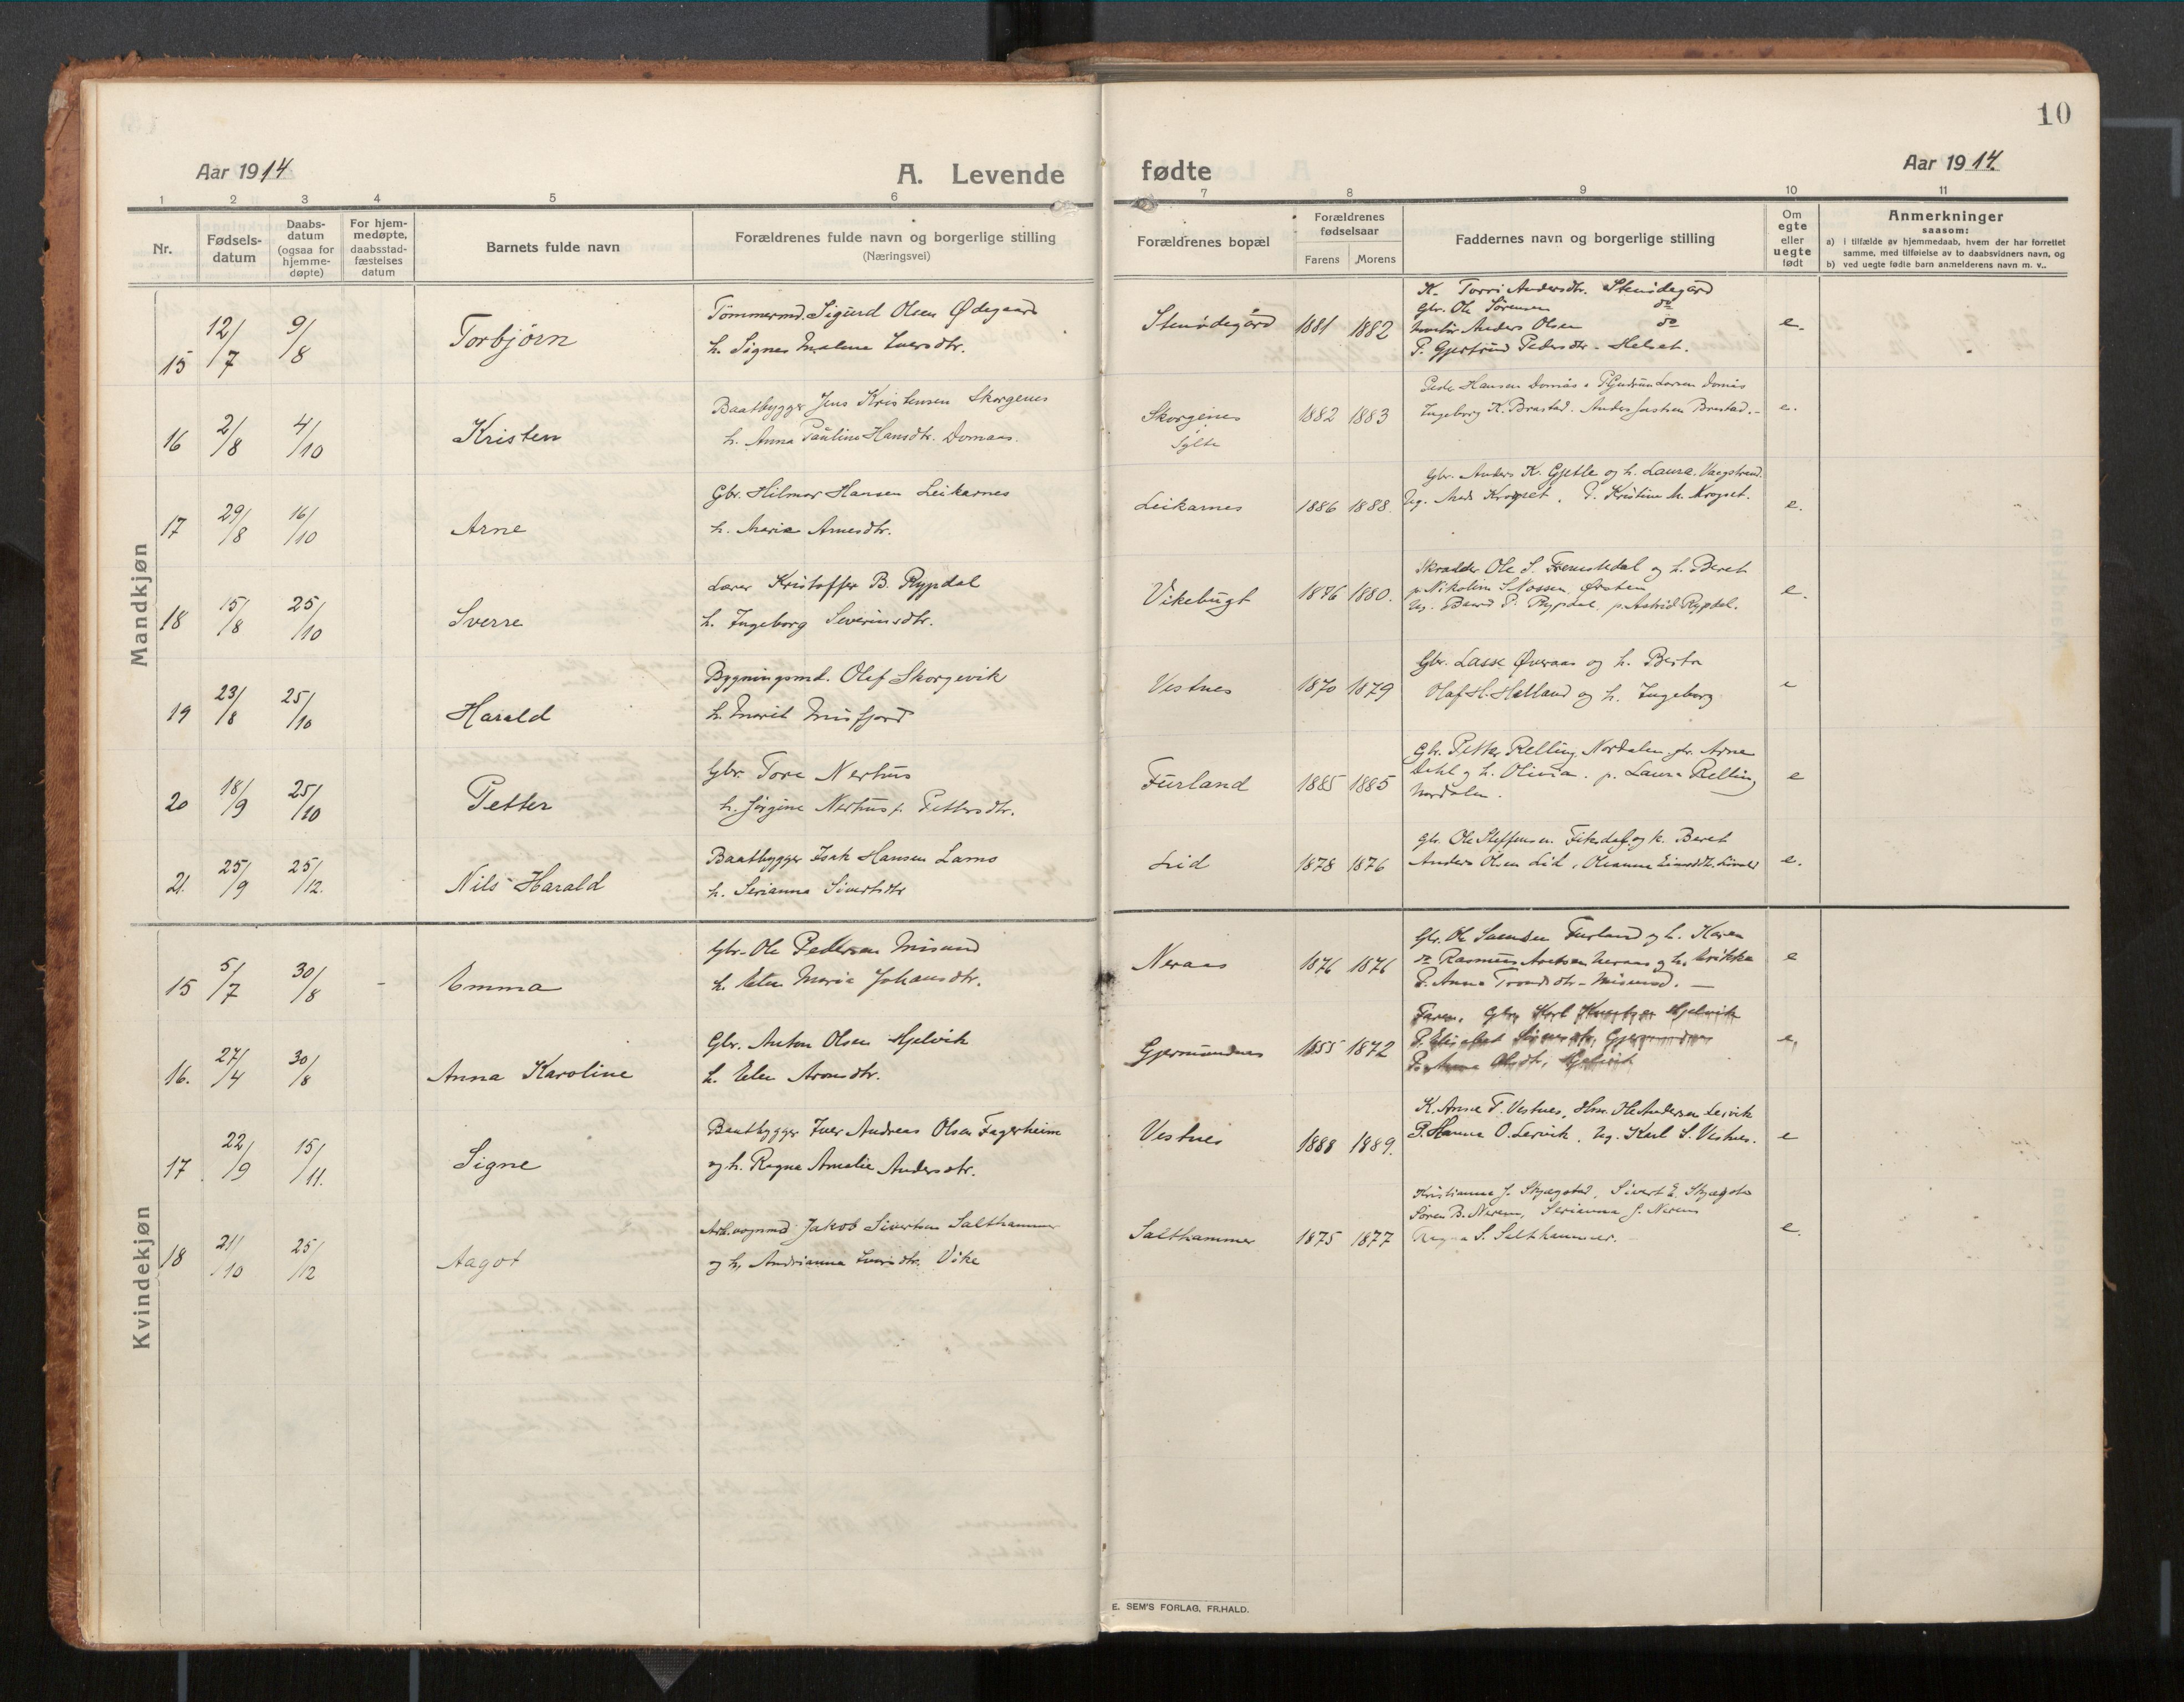 10
Aar 1914
A. Levende fødte
Aar 1914.
1 2 3 4 5 6 7 8 9 10 11
Nr.
Fødselsdatum
Daabsdatum (ogsaa for hjemmedøpte)
For hjemmedøpte, daabsstadfæstelses datum
Barnets fulde navn
Forældrenes fulde navn og borgerlige stilling
(Næringsvei)
Forældrenes bopæl
Forældrenes fødselsaar
Farens Morens
Faddernes navn og borgerlige stilling
Om egte eller uegte født
Anmerkninger
saasom:
a) i tilfælde av hjemmedaab, hvem der har forrettet samme, med tilføielse av to daabsvidners navn, og
b) ved uegte fødte barn anmelderens navn m. v..
Mandkjøn
15 12/7 9/8 Torbjörn
Tömmermd. Sigurd Olsen Ødegaard
h. Signe Malene Iversdtr.
Stenødegård 1881 1882
K. Torri Andersdtr. Stenödegård
Gbr. Ole Sørensen do
Anders Olsen do
P. Gjertrud Pedersdtr. Helset.
e.
16 2/8 4/10 Kristen
Baatbygger Jens Kristensen Skorgenes
h. Anna Pauline Hansdtr. Domaas.
Skorgenes
Sylte
1882 1883
Peder Hansen Domås P. Gudrun Larsen Domås
Ingeborg K. Brastad. Anders Brastad.
e.
17 29/8 16/10 Arne
Gbr. Hilmar Hansen Leikarnes
h. Marie Arnesdtr.
Leikarnes 1886 1888.
Gbr. Anders K. Gjelle og h. Laura. Vaagstrand.
Ug. Mads Krogset. P. Kristine M. Krogset.
e.
18 15/8 25/10 Sverre
Lærer Kristoffer B. Rypdal
h. Ingeborg Severinsdtr.
Vikebugt 1876 1880.
Skrædder Ole S. Fremstedal og h. Beret
p. Nikoline Mossen, Ørsten
Ug. Bård P. Rypdal. p. Astrid Rypdal.
e.
19 23/8 25/10 Harald
Bygningsmd. Olaf Skorgevik
h. Marit Misfjord
Vestnes 1870 1879
Gbr. Lasse Øveraas og h. Berta
Olaf H. Helland og h. Ingeborg
e
20 18/9 25/10 Petter
Gbr. Tore Nerhus
h. Jørgine Nerhus f. Pettersdtr.
Furland 1885 1885
Gbr. Petter Relling, Nordalen. gbr. Arne
Dahl og h. Olivia. p. Laura Relling
Nordalen.
e
21. 25/9 25/12. Nils Harald
Baatbygger Isak Hansen Lamo
h. Serianna Sivertsdtr
Lid 1878 1876
Gbr. Ole Steffensen Fiksdal og k. Beret
Anders Olsen Lid, Oleanna
e.
Kvindekjøn
15 5/7 30/8 - Emma
Gbr. Ole Pettersen Misund
h. Elen Marie Johansdtr.
Neraas 1876 1876
Gbr. Ole Furland og h. Karen
do Rasmus Neraas og h. Erikka
P. Anna Trondsdtr. Misund. —
e
16. 27/4 30/8 Anna Karoline
Gbr. Anton Olsen Hjelvik
h. Elen Aronsdtr.
Gjermundnes 1855 1872
Faren, Gbr. Karl Hjelvik
P. Elisabet Gjermundnes
P. Anna Olsdtr, Hjelvik
e.
17. 22/9 15/11. Signe
Baatbygger Iver Andreas Olsen Fagerheim
og h. Ragna Amalie Andersdtr.
Vestnes 1888 1889.
K. Anne T. Vestnes, Hm. Ole Andersen Leirvik
P. Hanna O. Leirvik. Ug. Karl S. Vestnes.
e
18 21/10 25/12 Aagot
Jakob Sivertsen Salthammer
og h. Andrianna Iversdtr. Vike
Salthammer 1875 1877
Kristianna J. Skjegstad, Sivert E. Skjegstad
Søren B. Nerem, Serianna J. Nerem
Ragna S. Salthammer.
e.
E. SEM'S FORLAG, FR.HALD.